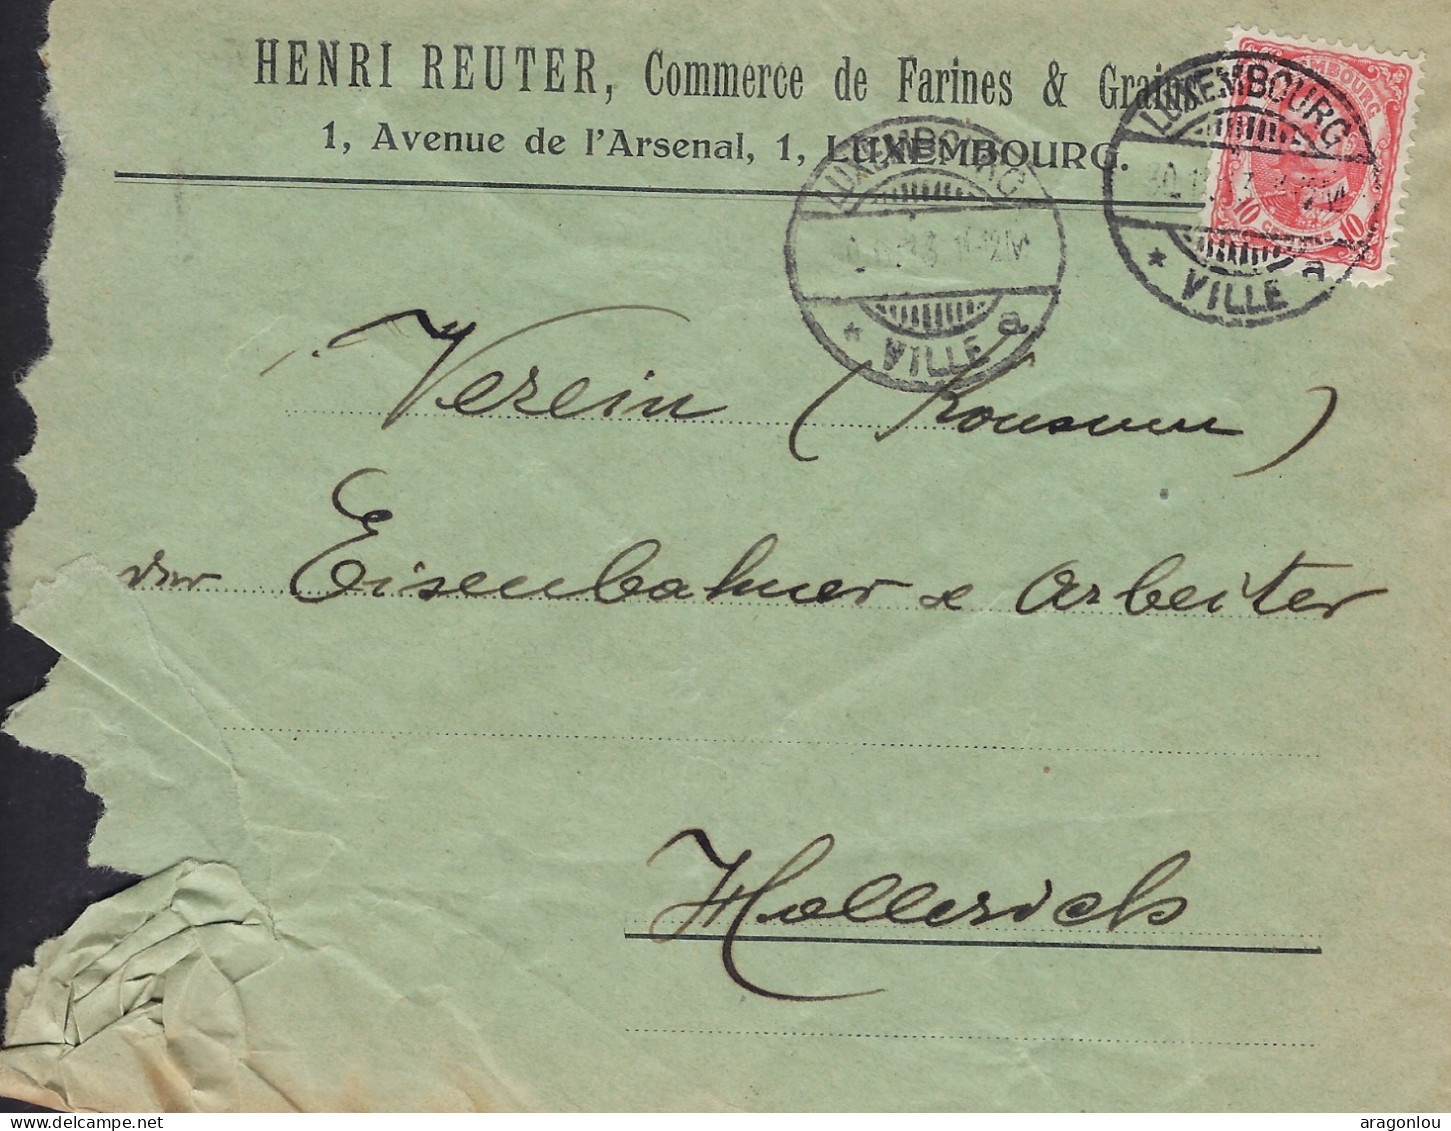 HENRI REUTER, Commerce de Farines & Grains
1, Avenue de l'Arsenal, 1, LUXEMBOURG.
LUXEMBOURG
VILLE a
LUXEMBOURG
VILLE a
LUXEMBOURG
10 10
Verein (Konsum)
der Eisenbahner & Arbeiter
Hollerich
aragonlou